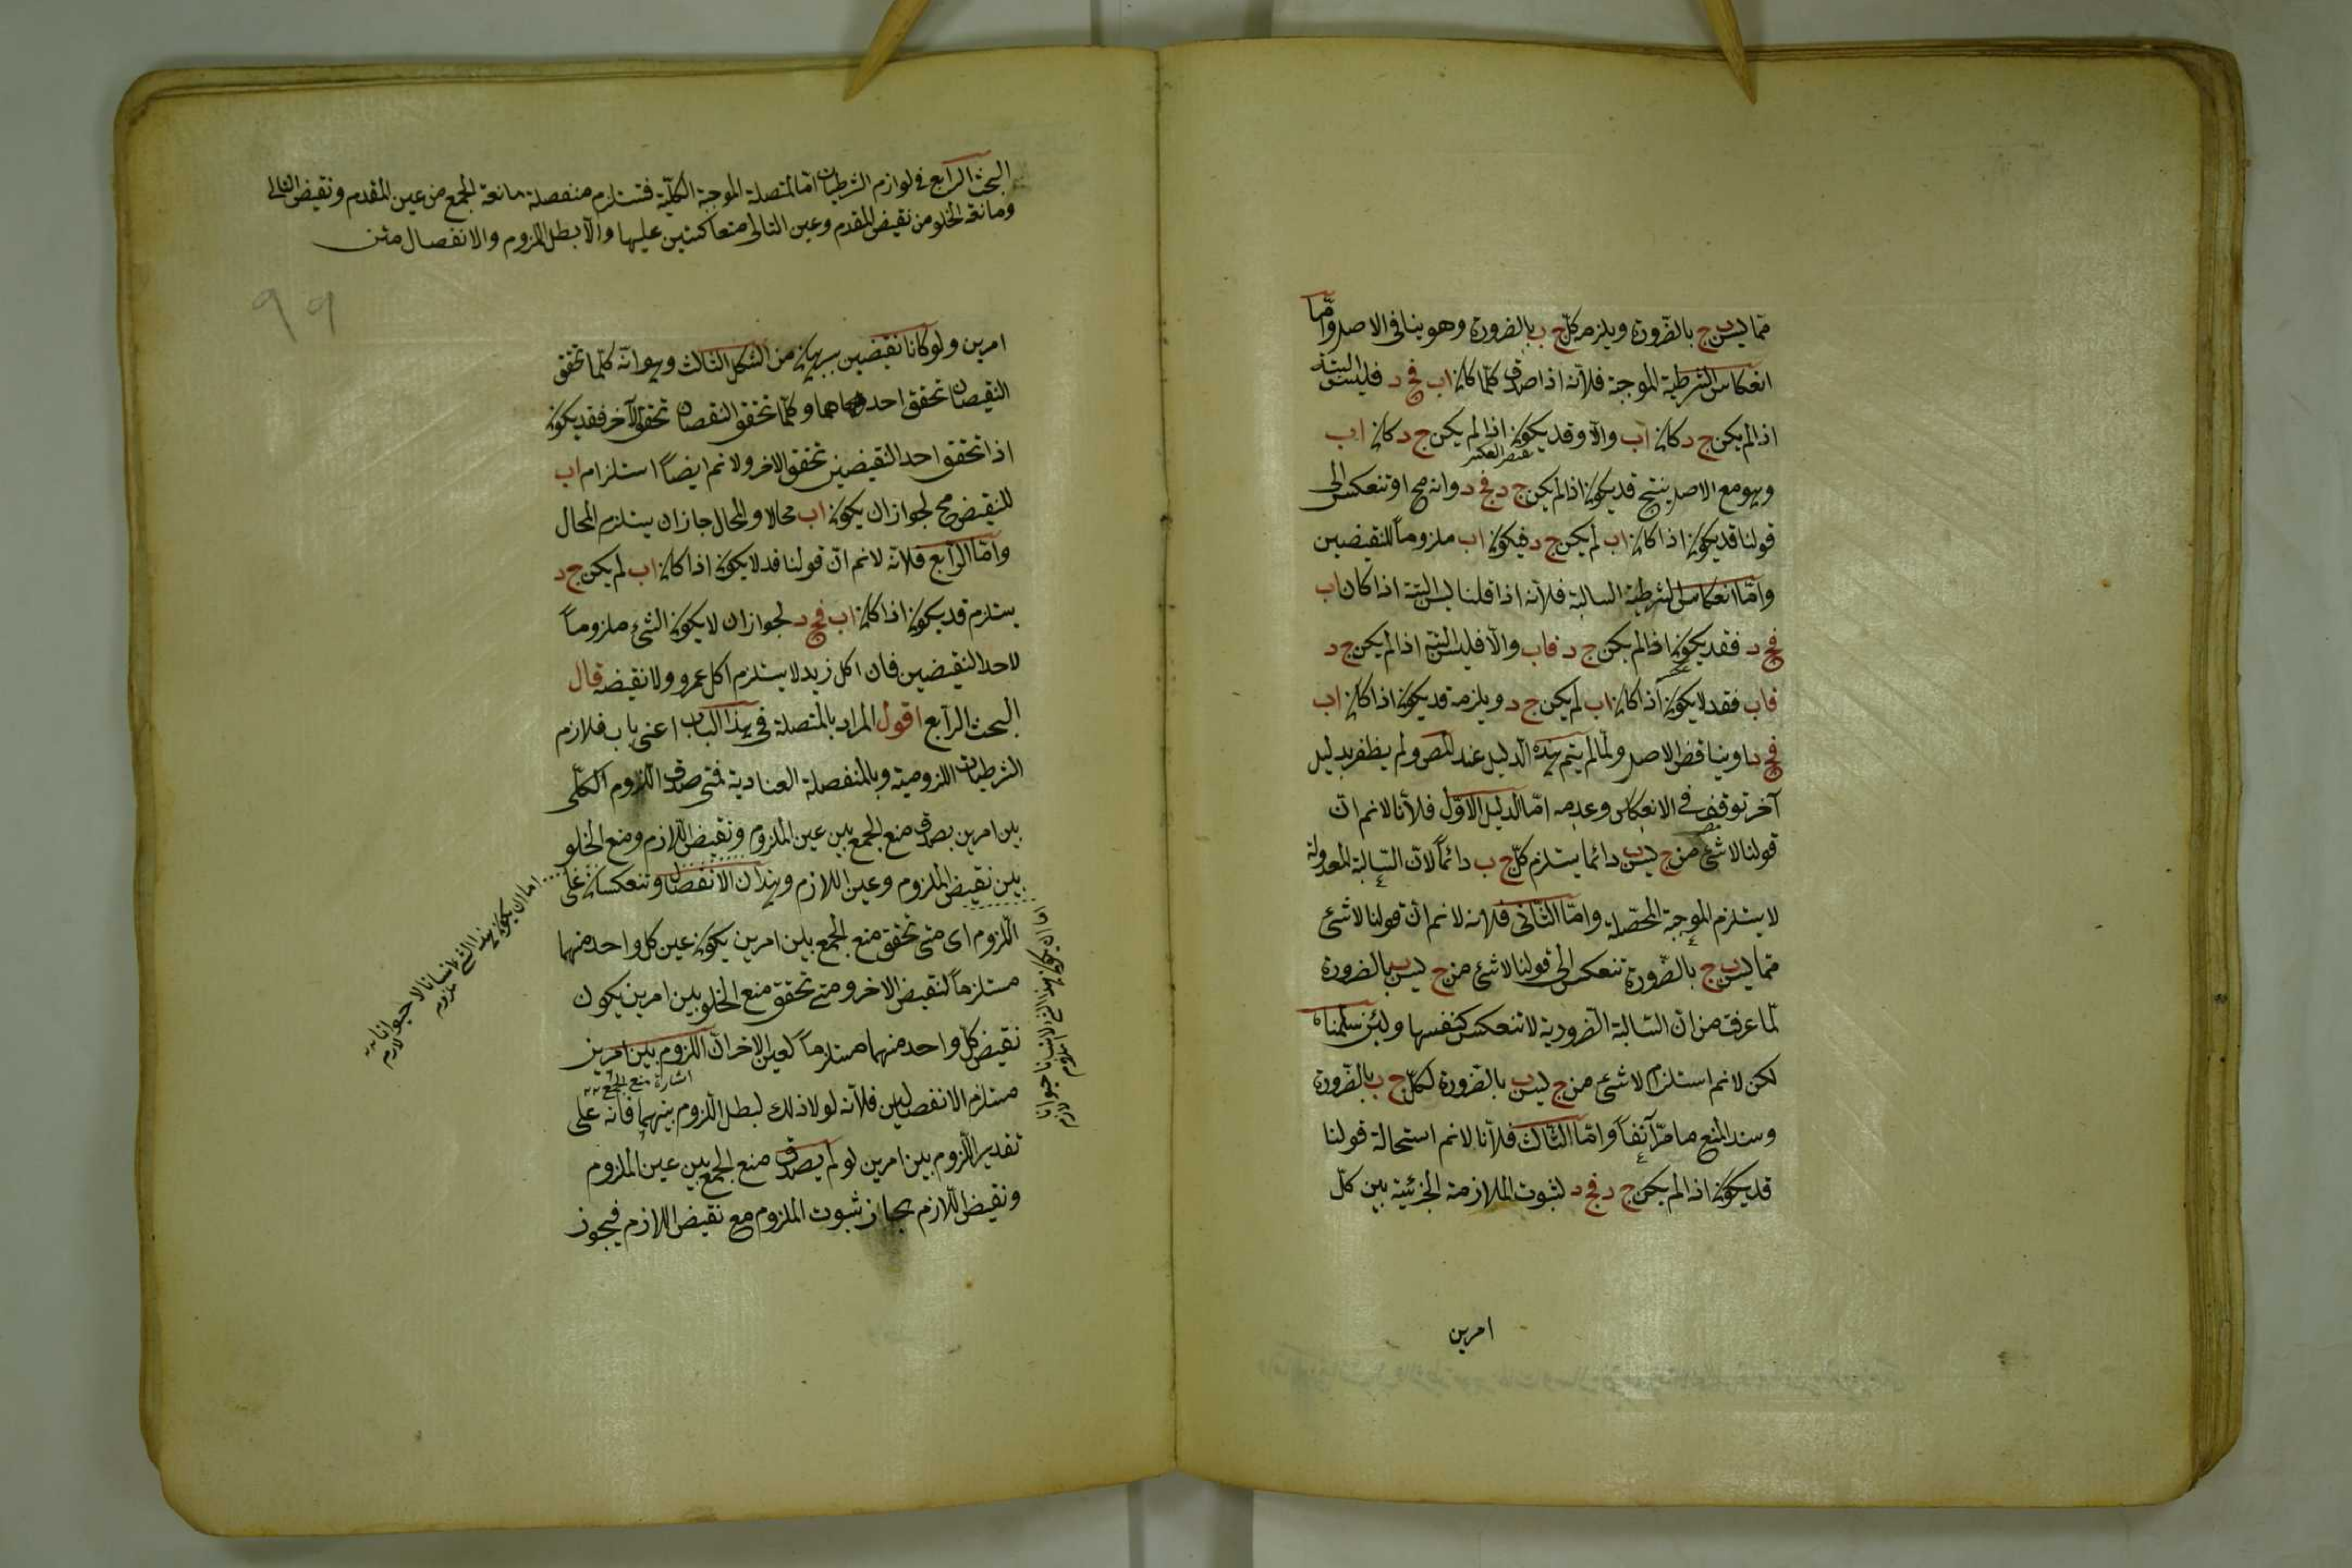 مما ليس ب ج بالضرورة ويلزمه كل ج ب بالضرورة وهو ينافي الاصل واما
انعكاس الشرطية الموجبة فلانه اذا صدق كلما كان اب فج د فليس البتة
اذا لم يكن ج د كان اب والا وقد يكون اذا لم يكن ج د كان اب
نقيض العكس
وهو مع الاصل ينتج قد يكون اذا لم يكن ج د فج د وانه مح او تنعكس الى
قولنا قد يكون اذا كان اب لم يكن ج د فيكون اب ملزوماً للنقيضين
واما انعكاس الشرطية السالبة فلانه اذا قلنا ليس البتة اذا كان اب
فج د فقد يكون اذا لم يكن ج د فاب والا فليس البتة اذا لم يكن ج د
فاب فقد لا يكون اذا كان اب لم يكن ج د ويلزمه قد يكون اذا كان اب
فج د ويناقض الاصل ولما لم يتم هذه الدليل عند المص ولم يظفر بدليل
آخر توقف في الانعكاس وعدمه اما الدليل الاول فلأنا لا نم ان
قولنا لا شئ من ج ليس ب دائما يستلزم كل ج ب دائماً لان السالبة المعدولة
لا يستلزم الموجبة المحصلة واما الثانى فلانه لا نم ان قولنا لا شئ
مما ليس ب ج بالضرورة تنعكس الى قولنا لا شئ من ج ليس ب بالضرورة
لما عرفت من ان السالبة الضرورية لا تنعكس كنفسها ولئن سلمناه
لكن لا نم استلزام لا شئ من ج ليس ب بالضرورة لكل ج ب بالضرورة
وسند المنع ما مر آنفاً واما الثالث فلأنا لا نم استحالة قولنا
قد يكون اذا لم يكن ج د فج د لثبوت الملازمة الجزئية بين كل
امرين
البحث الرابع في لوازم الشرطيات اما المتصلة الموجبة الكلية فتستلزم منفصلة مانعة الجمع من عين المقدم ونقيض التالى
ومانعة الخلو من نقيض المقدم وعين التالى متعاكستين عليها والا بطل اللزوم والانفصال متن
٩٩
امرين ولو كانا نقيضين ببرهان من الشكل الثالث وهو انه كلما تحقق
النقيضان تحقق احدهما وكلما تحقق النقيضان تحقق الآخر فقد يكون
اذا تحقق احد النقيضين تحقق الاخر ولا نم ايضاً استلزام اب
للنقيض مح لجواز ان يكون اب محالا والمحال جاز ان يستلزم المحال
واما الرابع فلانه لا نم ان قولنا قد لا يكون اذا كان اب لم يكن ج د
يستلزم قد يكون اذا كان اب فج د لجواز ان لا يكون الشئ ملزوماً
لاحد النقيضين فان اكل زيد لا يستلزم اكل عمرو ولا نقيضه قال
البحث الرابع اقول المراد بالمتصلة في هذا الباب اعنى باب فلازم
الشرطيات اللزومية وبالمنفصلة العنادية فمتى صدق اللزوم الكلى
بين امرين يصدق منع الجمع بين عين الملزوم ونقيض اللازم ومنع الخلو
بين نقيض الملزوم وعين اللازم وهذان الانفصالان وتنعكسان على
اللزوم اى متى تحقق منع الجمع بين امرين يكون عين كل واحد منهما
مستلزماً لنقيض الاخر ومتى تحقق منع الخلو بين امرين يكون
نقيض كل واحد منهما مستلزماً لعين الاخر ان اللزوم بين امرين
اشارة منع الجمع
مستلزم الانفصالين فلانه لولا ذلك لبطل اللزوم بينهما فانه على
تقدير اللزوم بين امرين لو لم يصدق منع الجمع بين عين الملزوم
ونقيض اللازم لجاز ثبوت الملزوم مع نقيض اللازم فيجوز
اما ان يكون هذا الشئ انسانا لا حيوانا
ملزوم
لازم
اما ان يكون هذا الشئ لا انسانا حيوانا
ملزوم
لازم